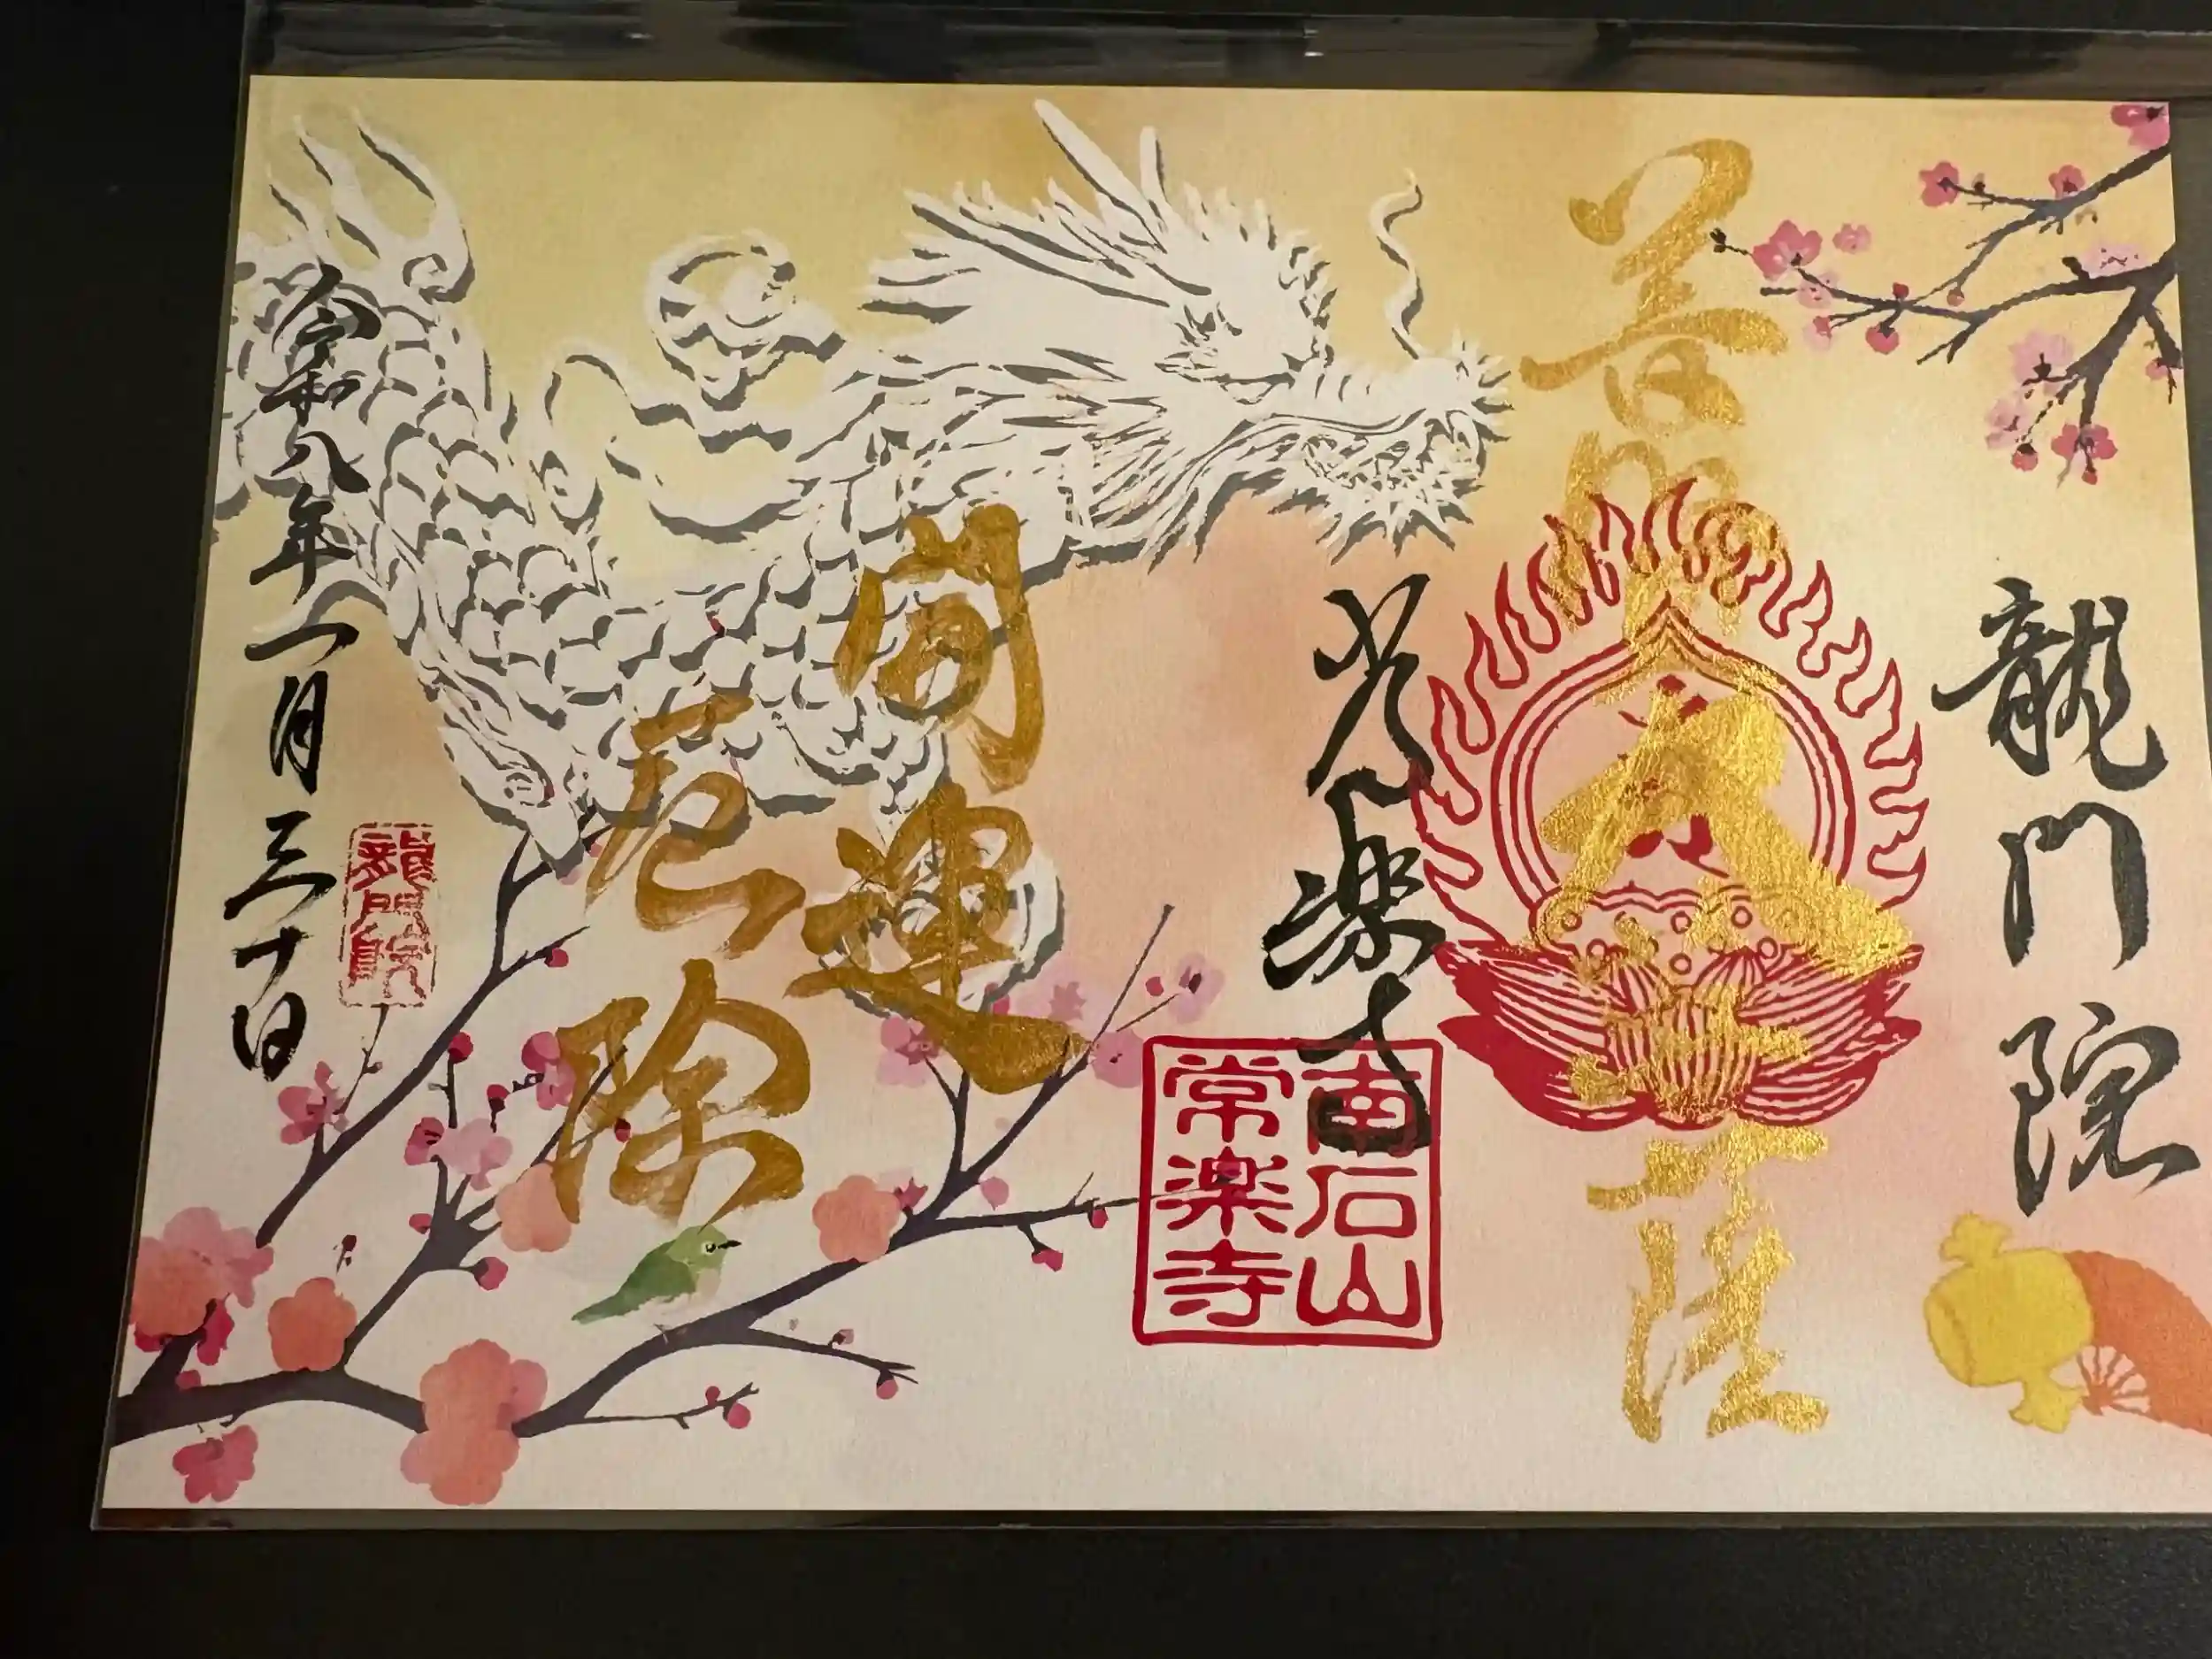 龍門院
大菩薩
常楽寺
南石山
常楽寺
開運
厄除
令和八年一月三十日
龍門院